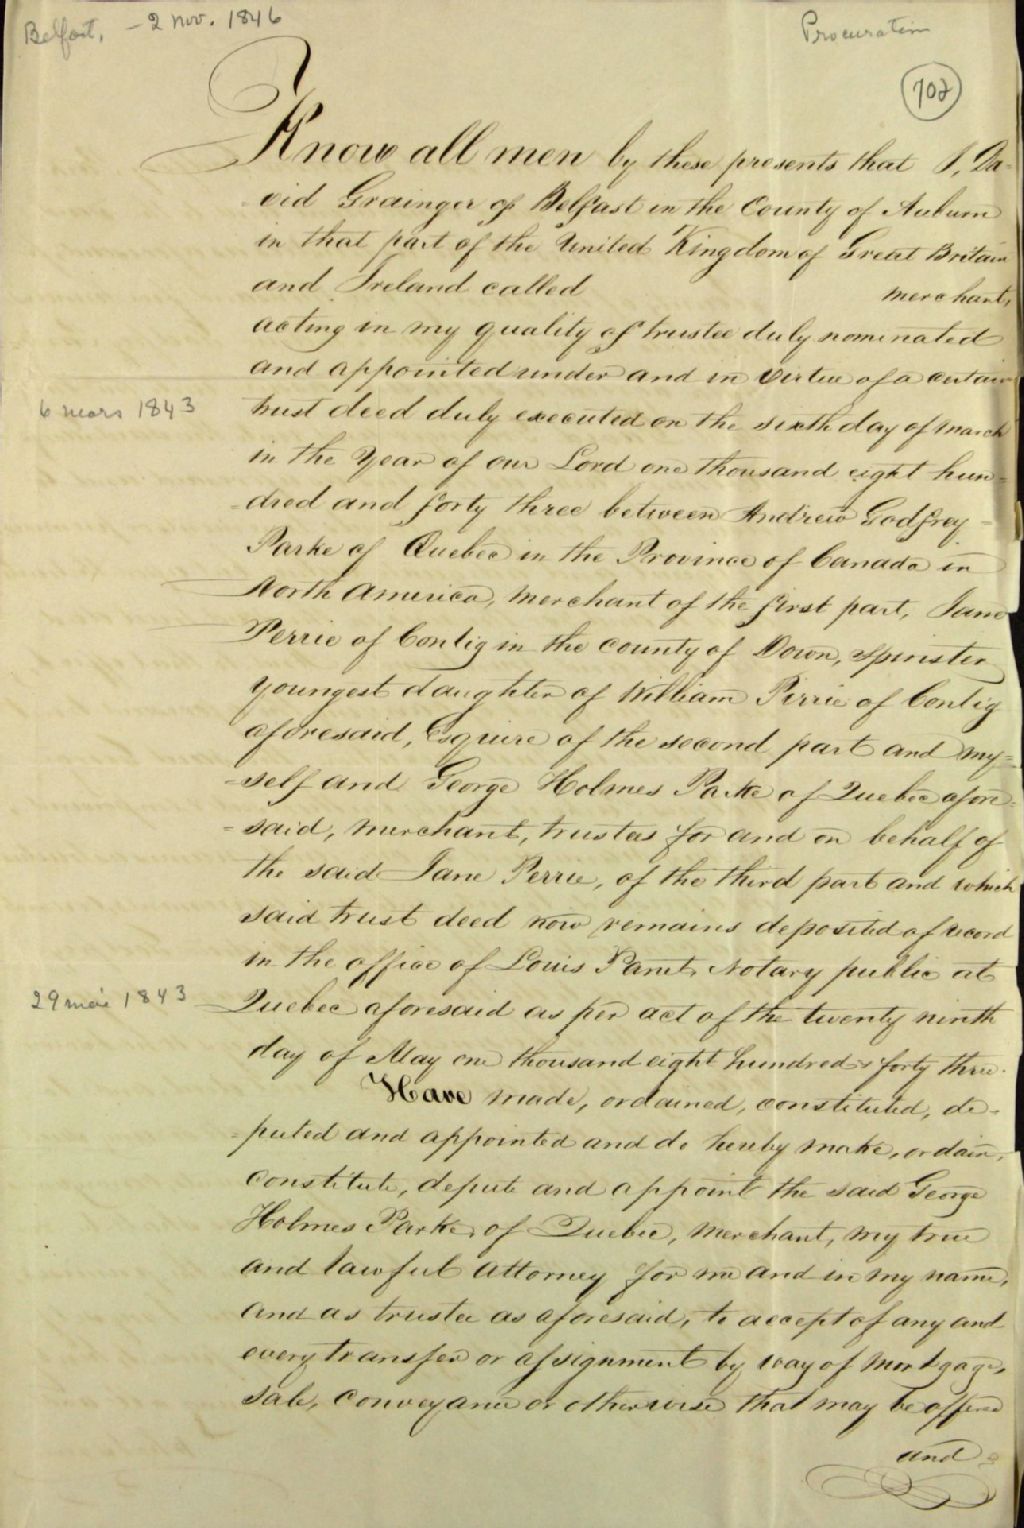 Belfast, - 2 nov. 1846
Procuration
702
Know all men by these presents that I, Da-
vid Grainger of Belfast in the County of Auburn
in that part of the United Kingdom of Great Britain
and Ireland called merchant,
acting in my quality of trustee duly nominated
and appointed under and in virtue of a certain
6 mars 1843
trust deed duly executed on the sixth day of march
in the Year of our Lord one thousand eight hun-
-dred and forty three between Andrew Godfrey -
Parke of Quebec in the Province of Canada in
North America, merchant of the first part, Jane
Perrie of Contig in the county of Down, spinster
youngest daughter of William Pirrie of Contig
aforesaid, Esquire of the second part and my=
-self and George Holmes Parke of Quebec afore-
=said, merchant, trustees for and on behalf of
the said Jane Perrie, of the third part and which
said trust deed now remains deposited of record
in the office of Louis Panet, Notary public at
29 mai 1843
Quebec aforesaid as per act of the twenty ninth
day of May one thousand eight hundred & forty three.
Have made, ordained, constituted, de-
-puted and appointed and do hereby make, ordain,
constitute, depute and appoint the said George
Holmes Parke, of Quebec, merchant, my true
and lawful attorney for me and in my name,
and as trustee as aforesaid, to accept of any and
every transfer or assignment by way of mortgage,
sale, conveyance or otherwise that may be offered
and